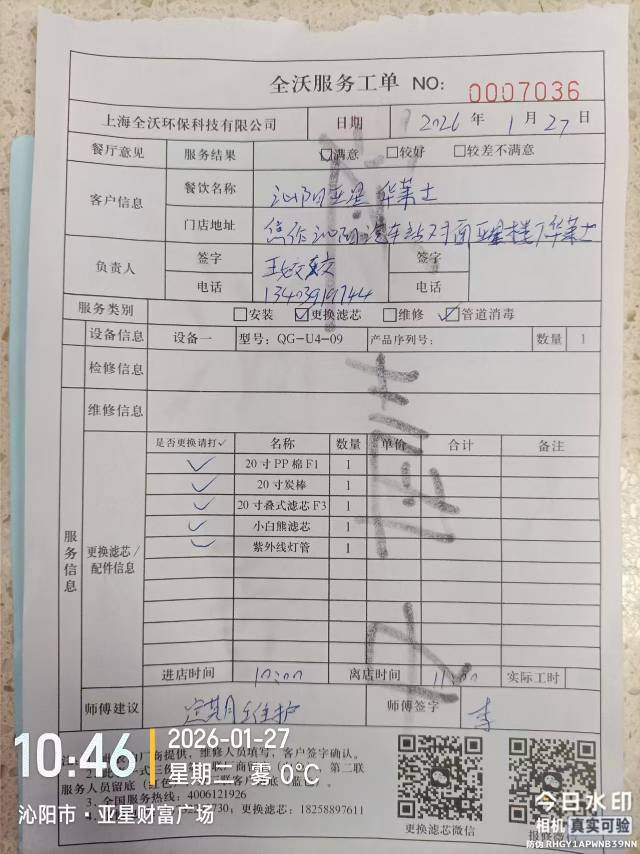 全沃服务工单 NO: 0007036
上海全沃环保科技有限公司 日期 2026 年 1 月 27 日
餐厅意见 服务结果 ☑满意 □较好 □较差不满意
客户信息 餐饮名称 沁阳亚星 华莱士
门店地址 焦作沁阳汽车站对面亚星楼下华莱士
负责人 签字 签字
电话 13403919744 电话
服务类别 □安装 ☑更换滤芯 □维修 ☑管道消毒
设备信息 设备一 型号: QG-U4-09 产品序列号: 数量 1
检修信息
维修信息
服务信息
更换滤芯/配件信息
是否更换请打✓ 名称 数量 单价 合计 备注
✓ 20寸PP棉F1 1
✓ 20寸炭棒 1
✓ 20寸叠式滤芯F3 1
✓ 小白熊滤芯 1
✓ 紫外线灯管 1
进店时间 10:00 离店时间 11:00 实际工时
师傅建议 定期维护 师傅签字 李
商提供, 维修人员填写, 客户签字确认。
第二联
服务人员留底
3、全国服务热线: 4006121926
730; 更换滤芯: 18258897611
更换滤芯微信
报修微
10:46
2026-01-27
星期二 雾 0℃
沁阳市·亚星财富广场
今日水印
相机 真实可验
防伪 RHGY1APWNB39NN